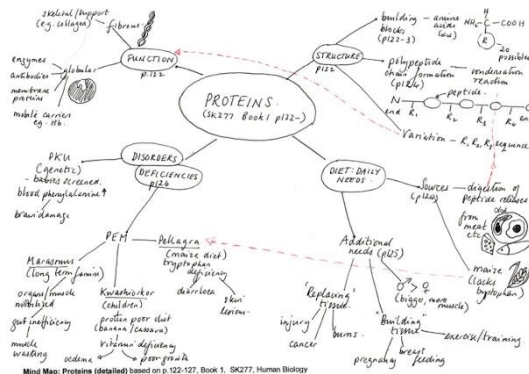 skeletal/support
(e.g. collagen)
fibrous
FUNCTION
p.122
enzymes
antibodies
membrane
proteins
mobile carriers
eg. Hb.
globular
PROTEINS
(SK277 Book 1 p122-)
STRUCTURE
p122
building
blocks
(p122-3)
amino
acids
(aa)
H
N
H
C
COOH
H
R
20
possible
polypeptide
chain formation
(p124)
condensation
reaction
peptide
N
end
R₁
R₂
R₃
R₄
end
Variation - R₁ R₂ R₃ sequence
DISORDERS
DEFICIENCIES
p126
PKU
(genetic)
- babies screened
blood phenylalanine ↑
brain damage
PEM
Marasmus
(long term famine)
organs/muscle
mobilised
gut inefficiency
muscle
wasting
Kwashiorkor
(children)
protein poor diet
(banana/cassava)
vitamin deficiency
oedema
poor growth
Pellagra
(maize diet)
tryptophan
deficiency
diarrhoea
skin
lesions
DIET: DAILY
NEEDS
Sources
(p124)
digestion of
peptide releases
aa
from
meat
etc
maize
(lacks
tryptophan)
Additional
needs (p125)
♂ > ♀
(bigger, more
muscle)
"Replacing"
tissue
injury
cancer
burns
"Building"
tissue
pregnancy
breast
feeding
exercise/training
Mind Map: Proteins (detailed) based on p.122-127, Book 1, SK277, Human Biology